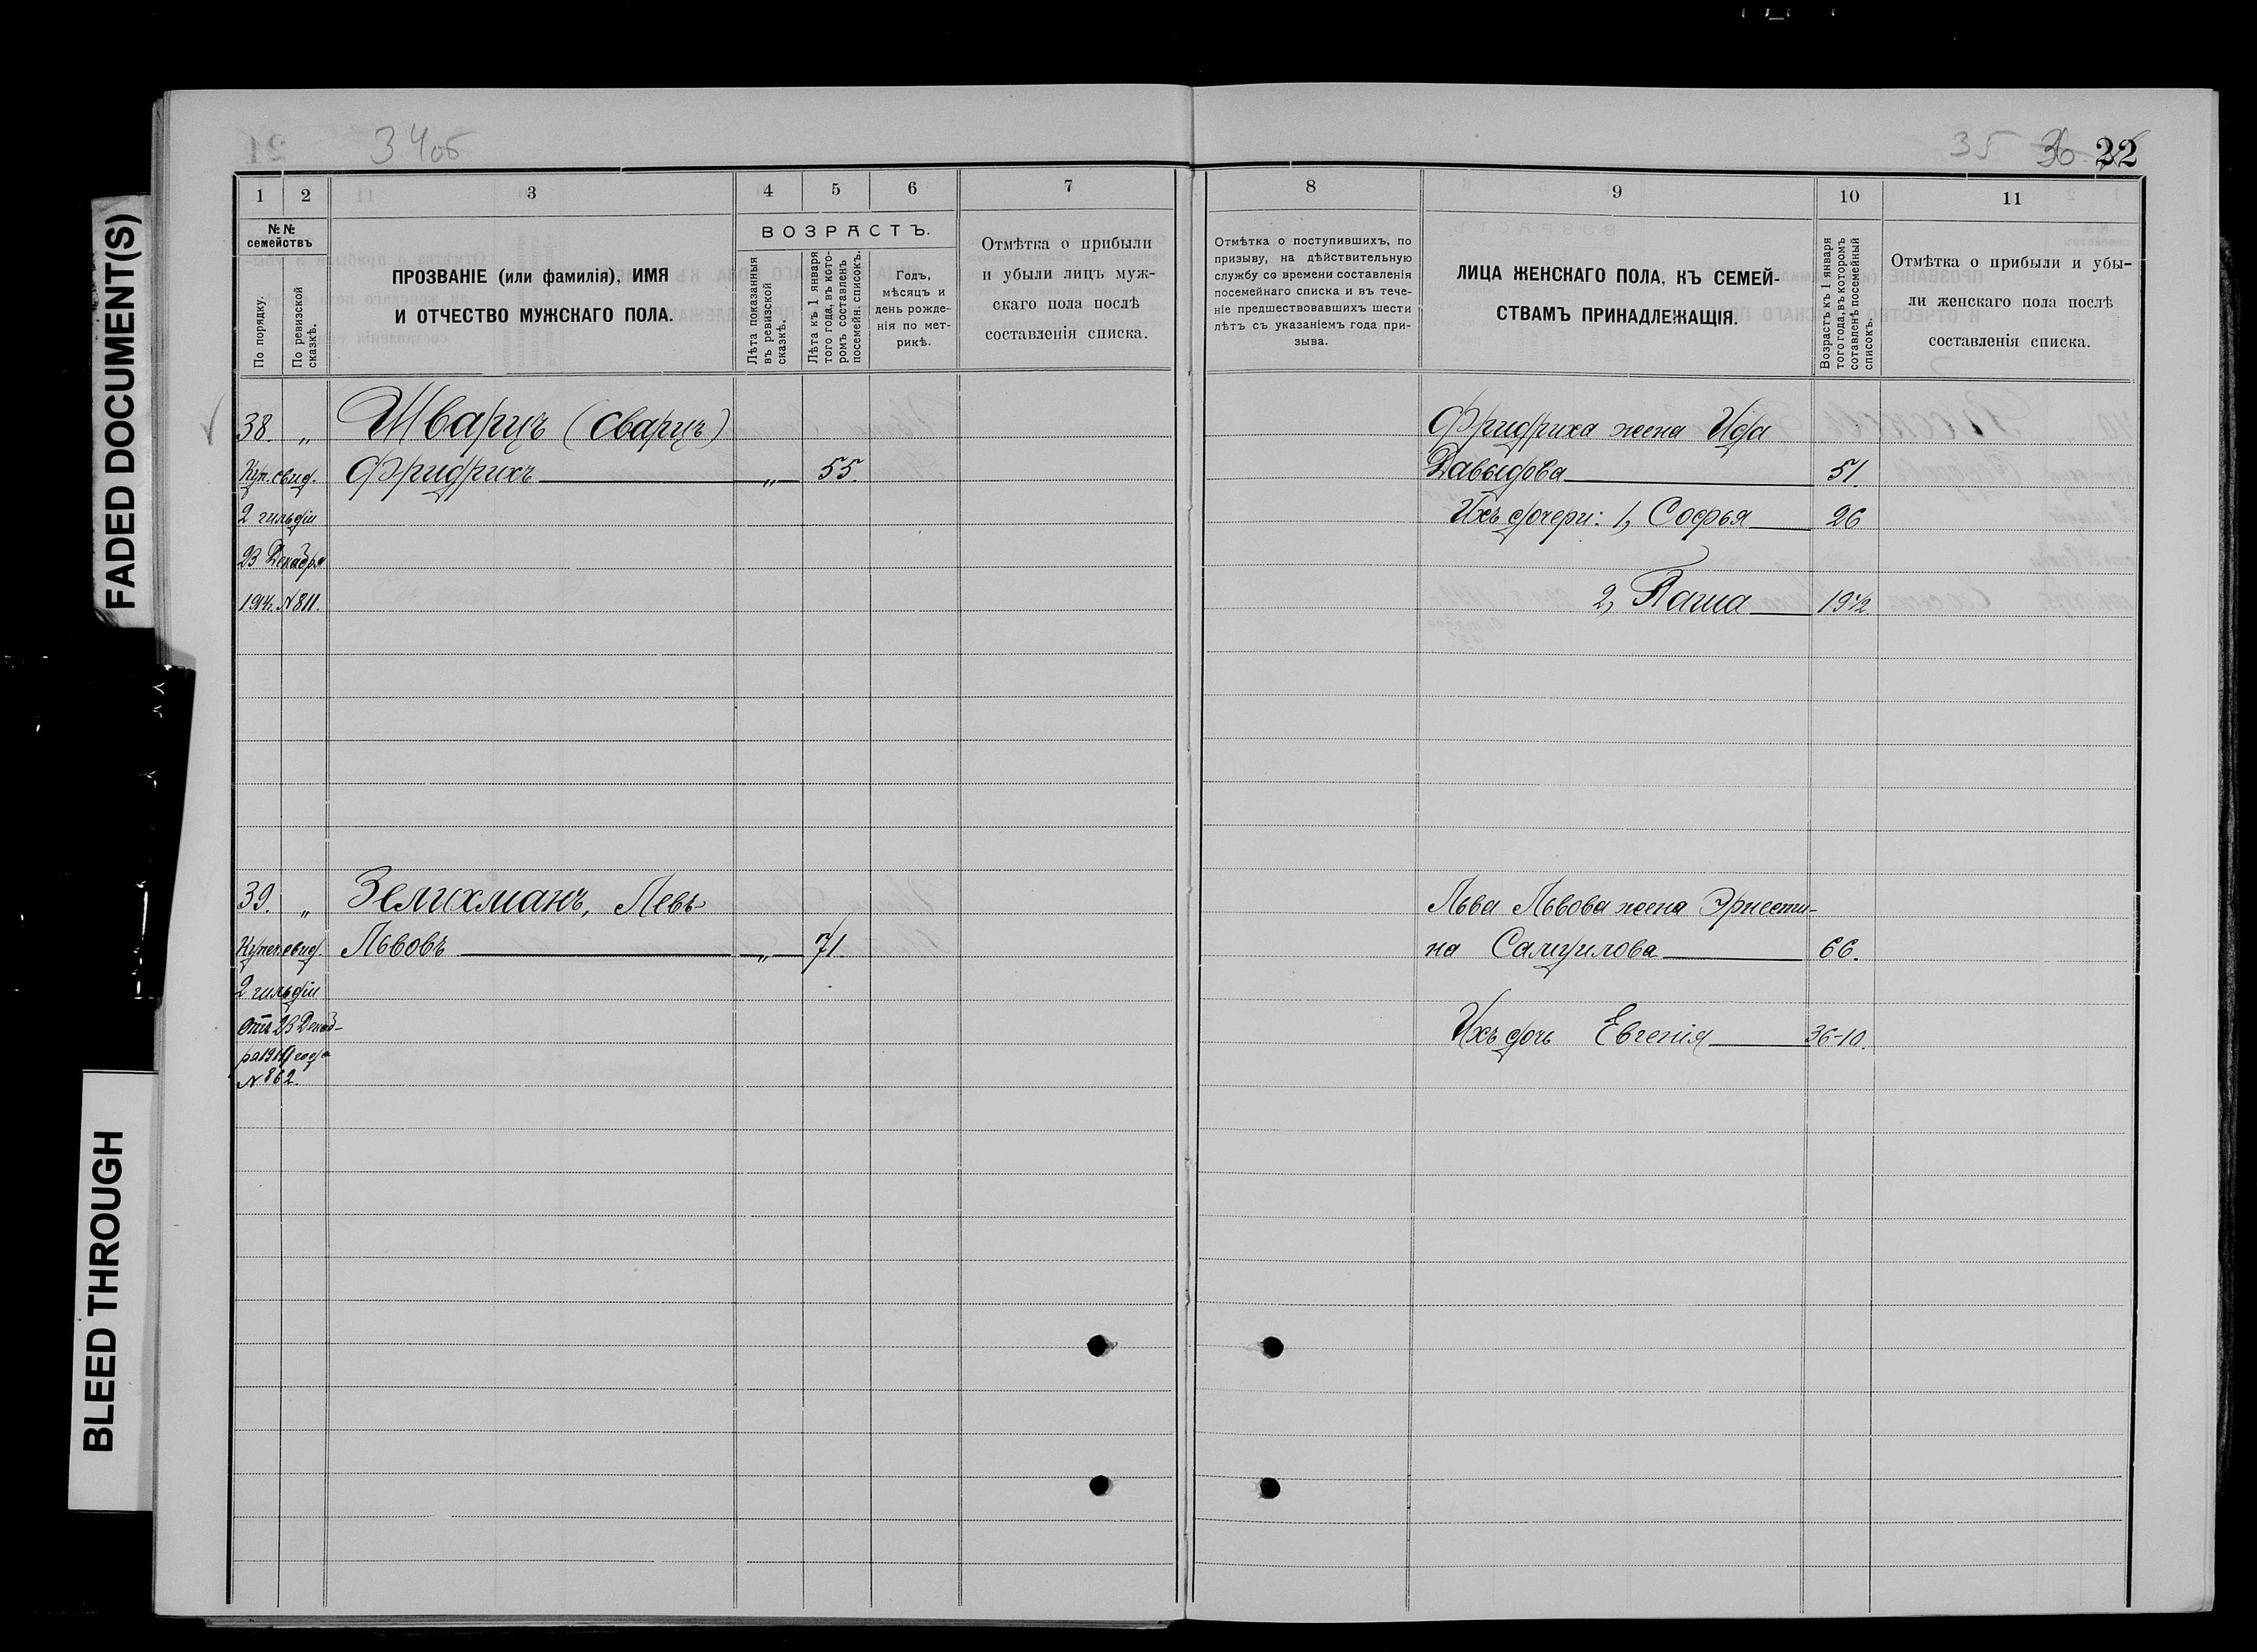 34об
35 36 22
1 2 3 4 5 6 7
8 9 10 11
№№ семействъ
По порядку.
По ревизской сказкѣ.
ПРОЗВАНІЕ (или фамилія), ИМЯ
И ОТЧЕСТВО МУЖСКАГО ПОЛА.
ВОЗРАСТЪ.
Лѣта показанныя
въ ревизской
сказкѣ.
Лѣта къ 1 января
того года, въ кото-
ромъ составленъ
посемейн. списокъ.
Годъ,
мѣсяцъ и
день рожде-
нія по мет-
рикѣ.
Отмѣтка о прибыли
и убыли лицъ муж-
скаго пола послѣ
составленія списка.
Отмѣтка о поступившихъ, по
призыву, на дѣйствительную
службу со времени составленія
посемейнаго списка и въ тече-
ніе предшествовавшихъ шести
лѣтъ съ указаніемъ года при-
зыва.
ЛИЦА ЖЕНСКАГО ПОЛА, КЪ СЕМЕЙ-
СТВАМЪ ПРИНАДЛЕЖАЩІЯ.
Возрастъ къ 1 января
того года, въ которомъ
сотавленъ посемейный
списокъ.
Отмѣтка о прибыли и убы-
ли женскаго пола послѣ
составленія списка.
38. „ Шварцъ (Сварцъ)
Куп. свид. Фридрихъ „ 55.
2 гильдіи
23 Декабря
1914г. № 811.
Фридриха жена Ида
Давыдова 51.
Ихъ дочери: 1, Софья 26
2, Паша 19½.
39. „ Зелихманъ, Левъ
Купеч. свид. Львовъ „ 71.
2 гильдіи
Отъ 23 Декаб-
ря 1914 года
№ 862.
Льва Львова жена Эрнести-
на Самуилова 66.
Ихъ дочь Евгенія 36-10.
FADED DOCUMENT(S)
BLEED THROUGH